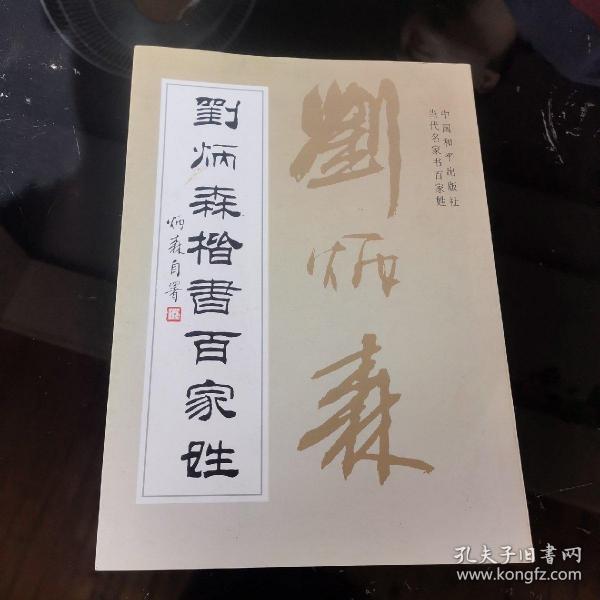 中国和平出版社
当代名家书百家姓
劉炳森
劉炳森楷書百家姓
炳森自署
孔夫子旧書网
www.kongfz.com